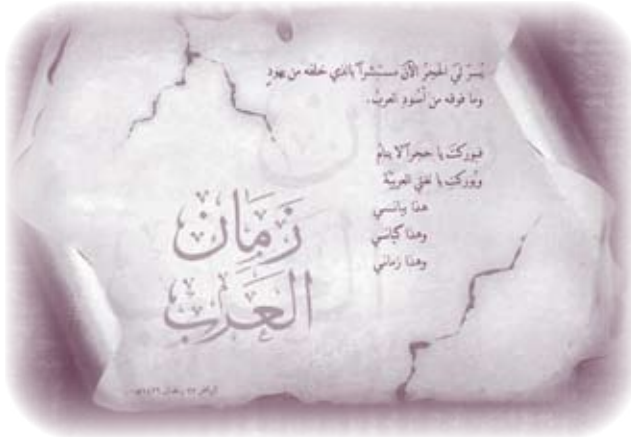 يُسرّ لي الحجرُ الآنَ مستبشراً بالذي خلفه من يهودِ
وما فوقه من أُسودِ العربْ.
فبوركتَ يا حجراً لا ينامْ
وبُوركتِ يا لغتي العربيّة
هذا بيانـي
وهذا كيانـي
وهذا زماني
زَمَان
العَرَب
الرياض ٢٢ رمضان